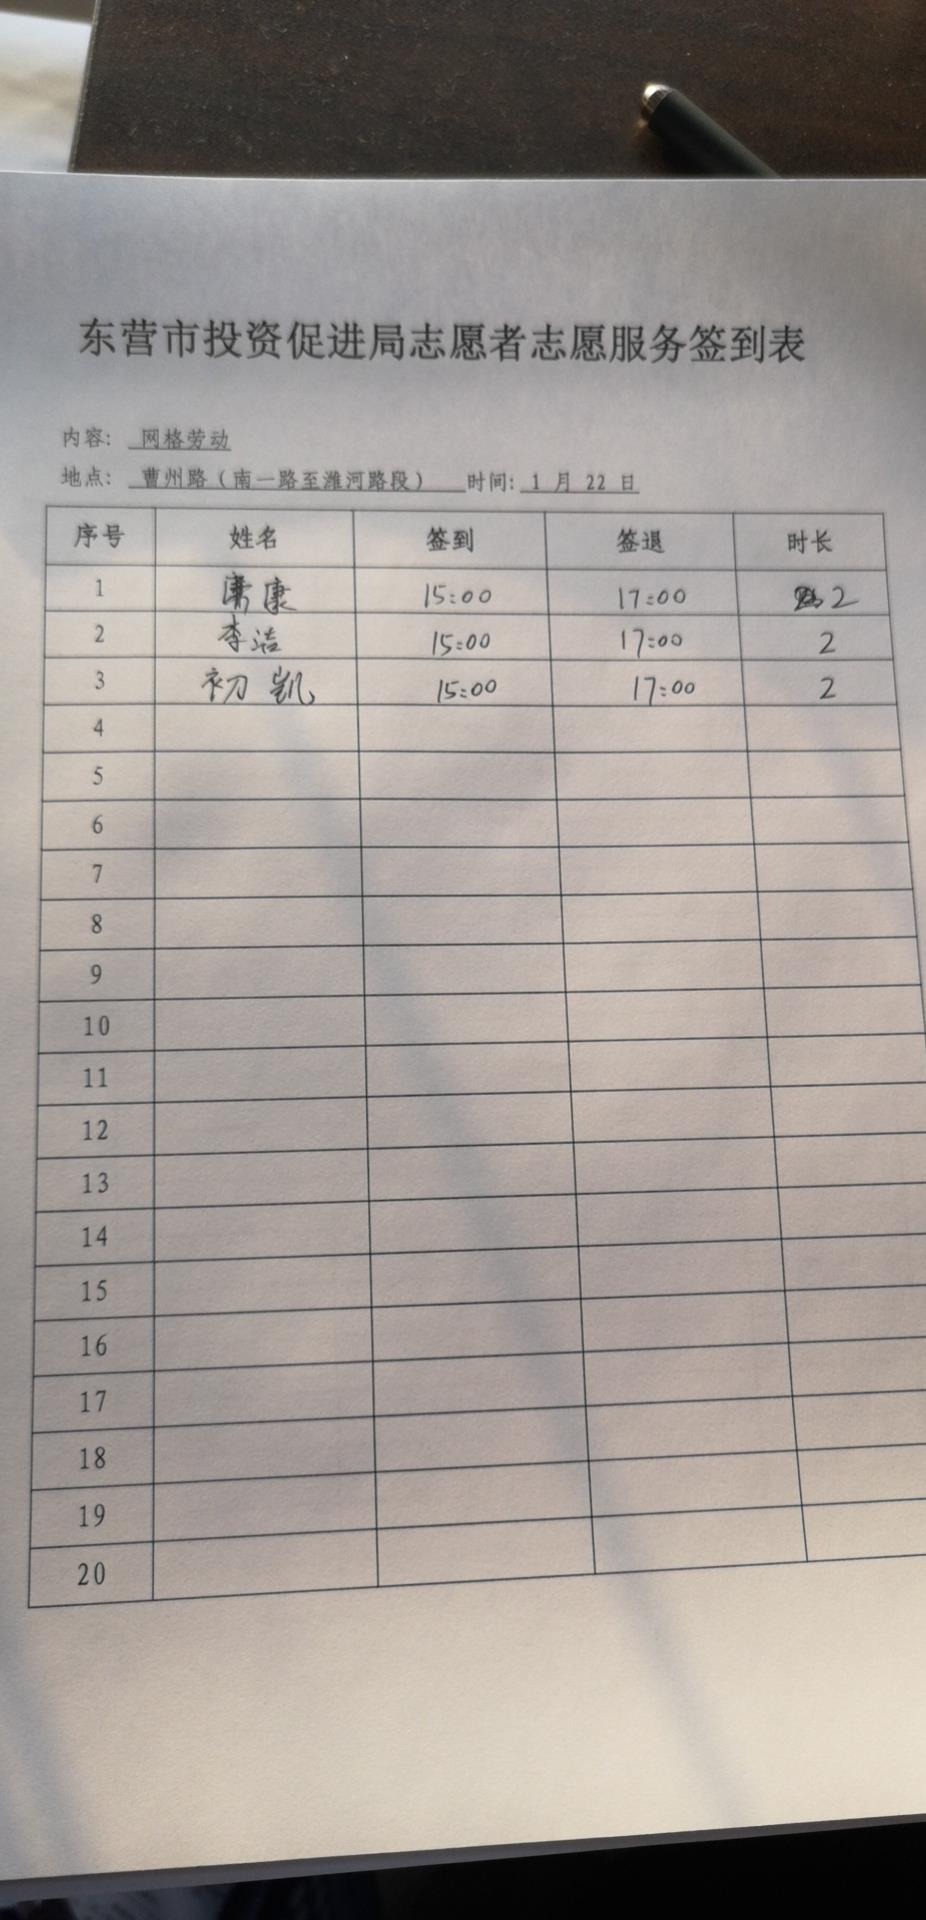 东营市投资促进局志愿者志愿服务签到表
内容: 网格劳动
地点: 曹州路（南一路至潍河路段） 时间: 1 月 22 日
序号 姓名 签到 签退 时长
1 康 15:00 17:00 2
2 李洁 15:00 17:00 2
3 初凯 15:00 17:00 2
4
5
6
7
8
9
10
11
12
13
14
15
16
17
18
19
20